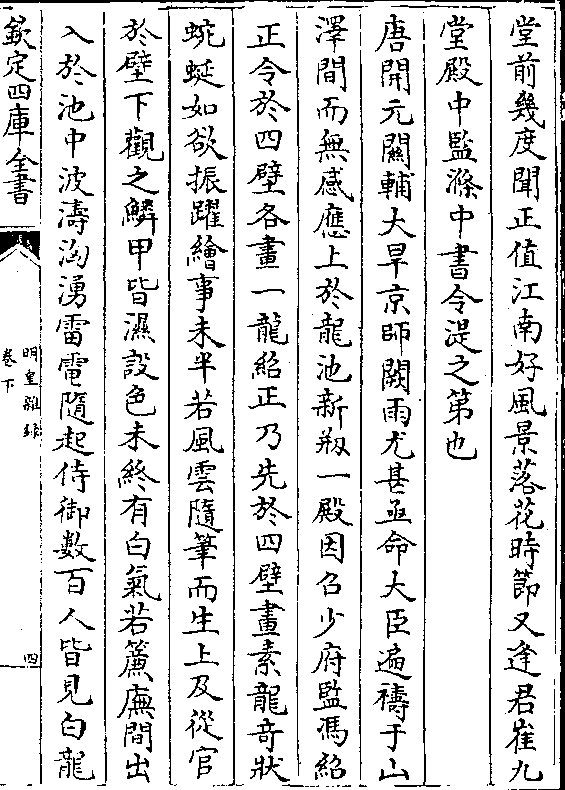 堂前幾度聞正值江南好風景落花時節又逢君崔九
堂殿中監滌中書令湜之第也
唐開元關輔大旱京師闕雨尤甚亟命大臣遍禱于山
澤間而無感應上於龍池新剏一殿因召少府監馮紹
正令於四壁各畫一龍紹正乃先於四壁畫素龍竒狀
蜿蜒如欲振躍繪事未半若風雲隨筆而生上及從官
於壁下觀之鱗甲皆濕設色未終有白氣若簾廡間出
入於池中波濤洶湧雷電隨起侍御數百人皆見白龍
欽定四庫全書
明皇雜錄
卷下
四